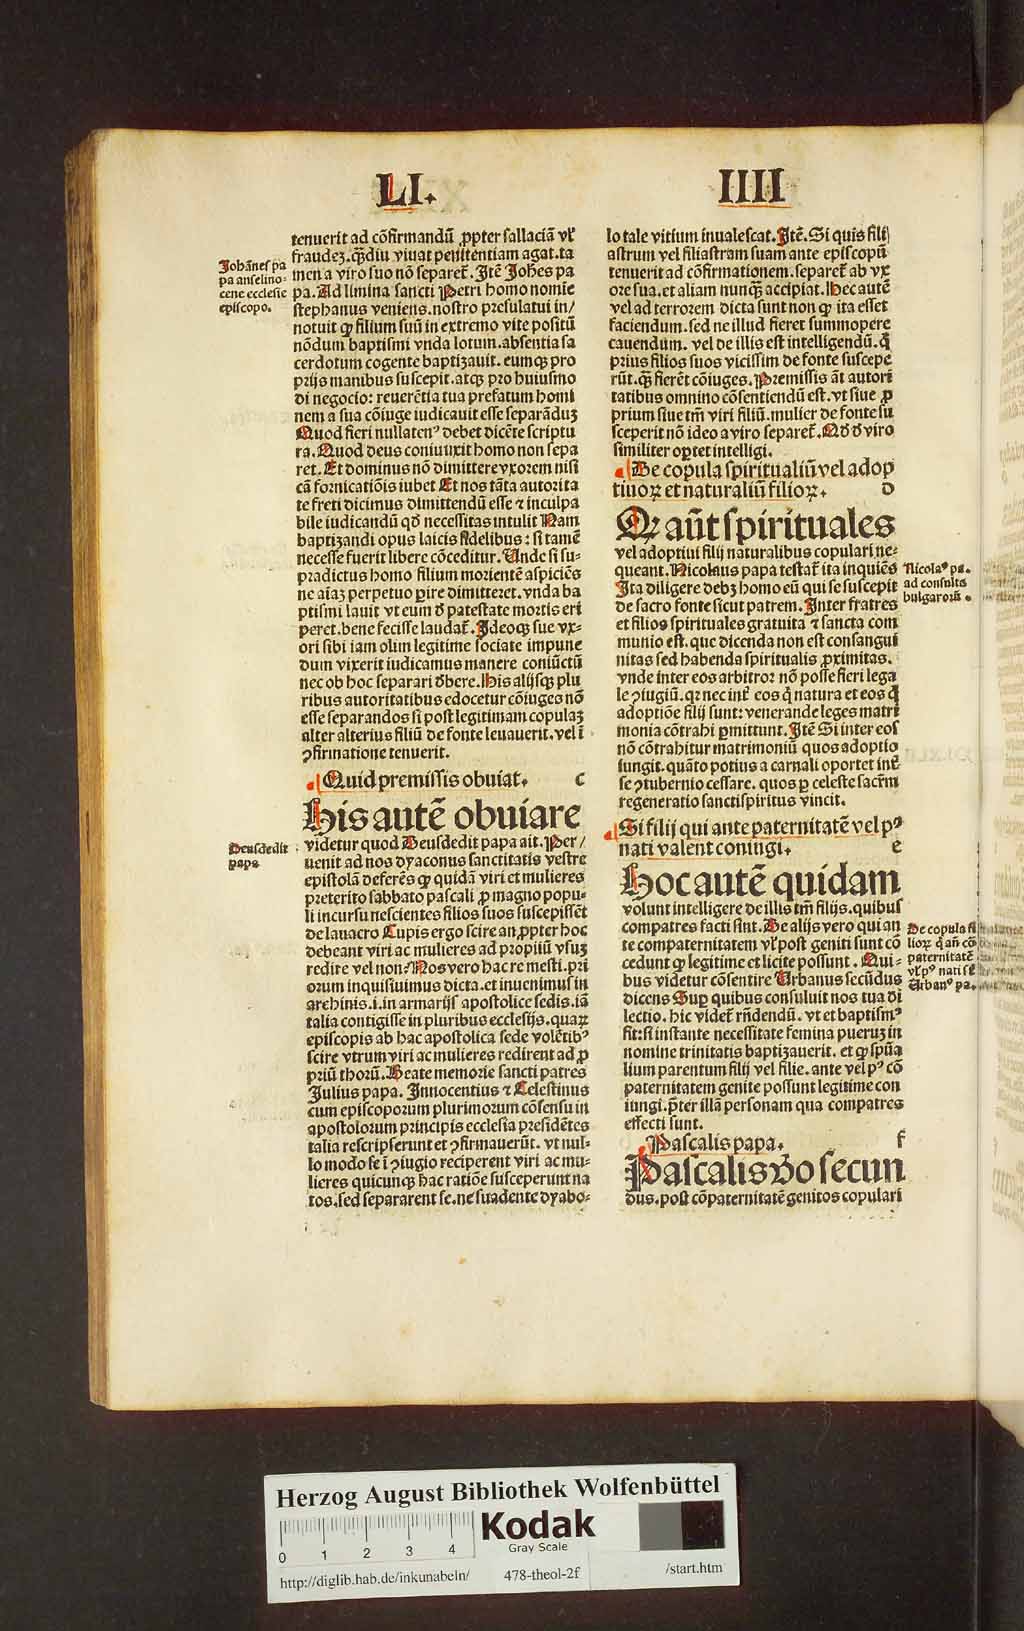 LI.
IIII
tenuerit ad cōfirmandū ꝓpter fallaciā vꝉ
fraudeʒ. qͣꝫdiu viuat penitentiam agat. ta
men a viro suo nō separet᷑. Itē Joh̄es pa
pa. Ad limina sancti Petri homo nomie
stephanus veniens. nostro presulatui in/
notuit ꝙ filium suū in extremo vite positū
nōdum baptismi vnda lotum. absentia sa
cerdotum cogente baptizauit. eumqꝫ pro
prijs manibus suscepit. atqꝫ pro huiusmo
di negocio: reuerētia tua prefatum homi
nem a sua cōiuge iudicauit esse separāduʒ
Quod fieri nullatenꝰ debet dicēte scriptu
ra. Quod deus coniunxit homo non sepa
ret. Et dominus nō dimittere vxorem nisi
cā fornicatiōis iubet Et nos tāta autorita
te freti dicimus dimittendū esse ⁊ inculpa
bile iudicandū qd̄ necessitas intulit Nam
baptizandi opus laicis fidelibus: si tamē
necesse fuerit libere cōceditur. Unde si su-
pradictus homo filium morientē aspiciēs
ne aīaʒ perpetuo ꝑire dimitteret. vnda ba
ptismi lauit vt eum d̄ patestate mortis eri
peret. bene fecisse laudat᷑. Ideoqꝫ sue vx-
ori sibi iam olim legitime sociate impune
dum vixerit iudicamus manere coniūctū
nec ob hoc separari d̄bere. His alijsqꝫ plu
ribus autoritatibus edocetur cōiuges nō
esse separandos si post legitimam copulaʒ
alter alterius filiū de fonte leuauerit. vel ī
ꝯfirmatione tenuerit.
Quid premissis obuiat. C
His autē obuiare
videtur quod Deusdedit papa ait. Per/
uenit ad nos dyaconus sanctitatis vestre
epistolā deferēs ꝙ quidā viri et mulieres
preterito sabbato pascali ꝓ magno popu-
li incursu nescientes filios suos suscepissēt
de lauacro Cupis ergo scire an ꝓpter hoc
debeant viri ac mulieres ad propiiū vsuʒ
redire vel non? Nos vero hac re mesti. pri
orum inquisiuimus dicta. et inuenimus in
archinis. i. in armarijs apostolice sedis. iā
talia contigisse in pluribus ecclesijs. quaꝝ
episcopis ab hac apostolica sede volētibꝰ
scire vtrum viri ac mulieres redirent ad ꝓ
priū thorū. Beate memorie sancti patres
Julius papa. Innocentius ⁊ Celestinus
cum episcoporum plurimorum cōsensu in
apostolorum principis ecclesia presidētes
talia rescripserunt et ꝯfirmauerūt. vt nul-
lo modo se ī ꝯiugio reciperent viri ac mu-
lieres quicunqꝫ hac ratiōe susceperunt na
tos. sed separarent se. ne suadente dyabo-
Johānes pa
pa anselino-
cene ecclesie
episcopo.
Deusdedit
papa
lo tale vitium inualescat. Itē. Si quis fili
astrum vel filiastram suam ante episcopū
tenuerit ad cōfirmationem. separet᷑ ab vx
ore sua. et aliam nunqͣꝫ accipiat. Hec autē
vel ad terrorem dicta sunt non ꝙ ita esset
faciendum. sed ne illud fieret summopere
cauendum. vel de illis est intelligendū. q̄
prius filios suos vicissim de fonte suscepe
rūt. qͣꝫ fierēt cōiuges. Premissis āt autori
tatibus omnino cōsentiendū est. vt siue ꝓ
prium siue tm̄ viri filiū. mulier de fonte su
sceperit nō ideo a viro separet᷑. Qd̄ d̄ viro
similiter oportet intelligi.
De copula spiritualiū vel adop
tiuoꝝ et naturaliū filioꝝ. D
Qꝫ aūt spirituales
vel adoptiui filij naturalibus copulari ne-
queant. Nicolaus papa testat᷑ ita inquiēs
Ita diligere debʒ homo eū qui se suscepit
de sacro fonte sicut patrem. Inter fratres
et filios spirituales gratuita ⁊ sancta com
munio est. que dicenda non est consangui
nitas sed habenda spiritualis ꝓximitas.
vnde inter eos arbitror nō posse fieri lega
le ꝯiugiū. qꝛ nec int᷑ eos q̄ natura et eos q̄
adoptiōe filij sunt: venerande leges matri
monia cōtrahi ꝑmittunt. Itē Si inter eos
nō cōtrahitur matrimoniū quos adoptio
iungit. quāto potius a carnali oportet int᷑
se ꝯtubernio cessare. quos ꝑ celeste sacrm̄
regeneratio sanctispiritus vincit.
Si filij qui ante paternitatē vel pꝰ
nati valent coniungi. E
Hoc autē quidam
volunt intelligere de illis tm̄ filijs. quibus
compatres facti sint. De alijs vero qui an
te compaternitatem vꝉ post geniti sunt cō
cedunt ꝙ legitime et licite possunt. Qui-
bus videtur cōsentire Urbanus secūdus
dicens Suꝑ quibus consuluit nos tua di
lectio. hic videt᷑ rn̄dendū. vt et baptismꝰ
fit: si instante necessitate femina pueruʒ in
nomine trinitatis baptizauerit. et ꝙ spūa
lium parentum filij vel filie. ante vel pꝰ cō
paternitatem genite possunt legitime con
iungi. p̄ter illā personam qua compatres
effecti sunt.
Pascalis papa. F
Pascalis v̄o secun
dus. post cōpaternitatē genitos copulari
Nicolaꝰ pa.
ad consulta
bulgaroꝝ.
De copula fi
lioꝝ q̄ an̄ cō
paternitatē
vꝉ pꝰ nati sūt
Urbanꝰ pa.
Herzog August Bibliothek Wolfenbüttel
0 1 2 3 4
Kodak
Gray Scale
http://diglib.hab.de/inkunabeln/ 478-theol-2f /start.htm